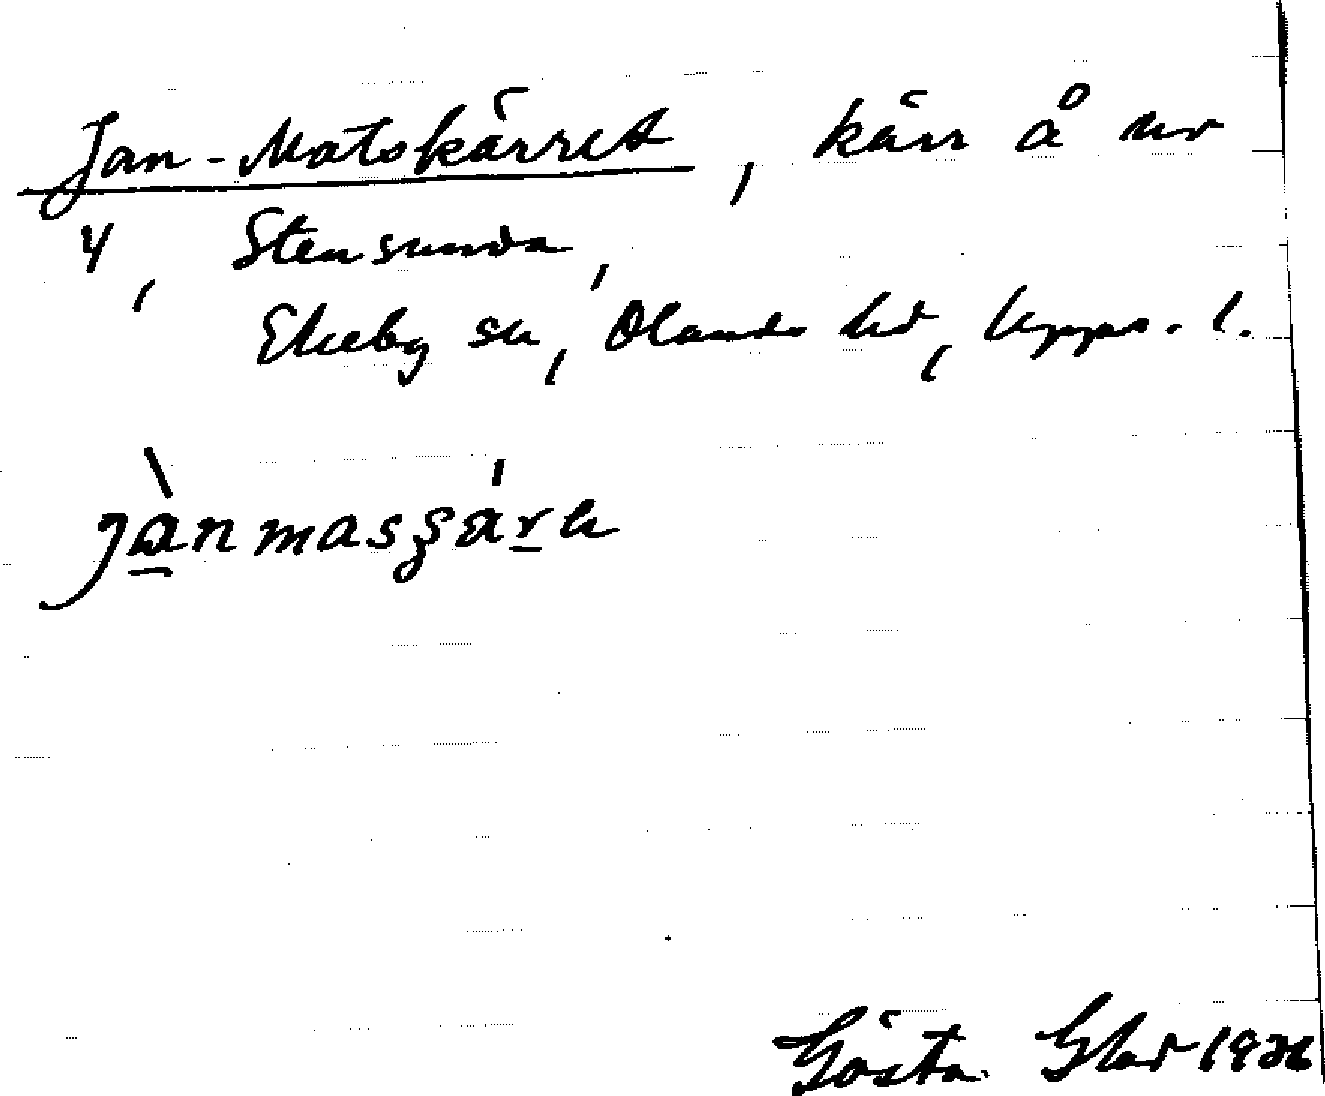 Jan-Matskärret, kärr å nr
4, Stensunda,
Ekeby sn, Olands hd, Upps. l.
jànmasʒä́rɛ
Gösta